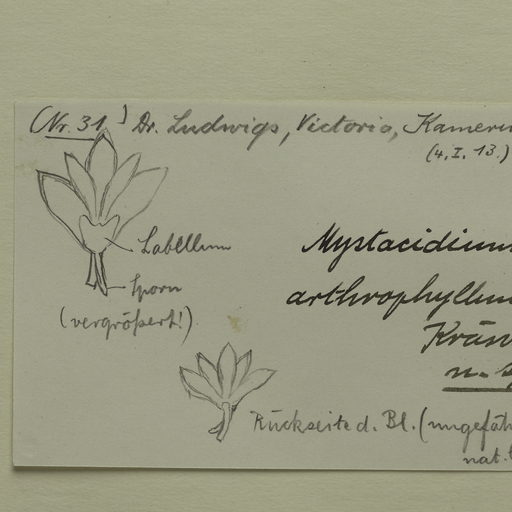 (Nr. 31) Dr. Ludwigs, Victoria, Kamerun
(4. I. 13.)
Labellum
Sporn
(vergrößert!)
Mystacidium
arthrophyllum
Krän
n. s
Rückseite d. Bl. (ungefäh
nat.